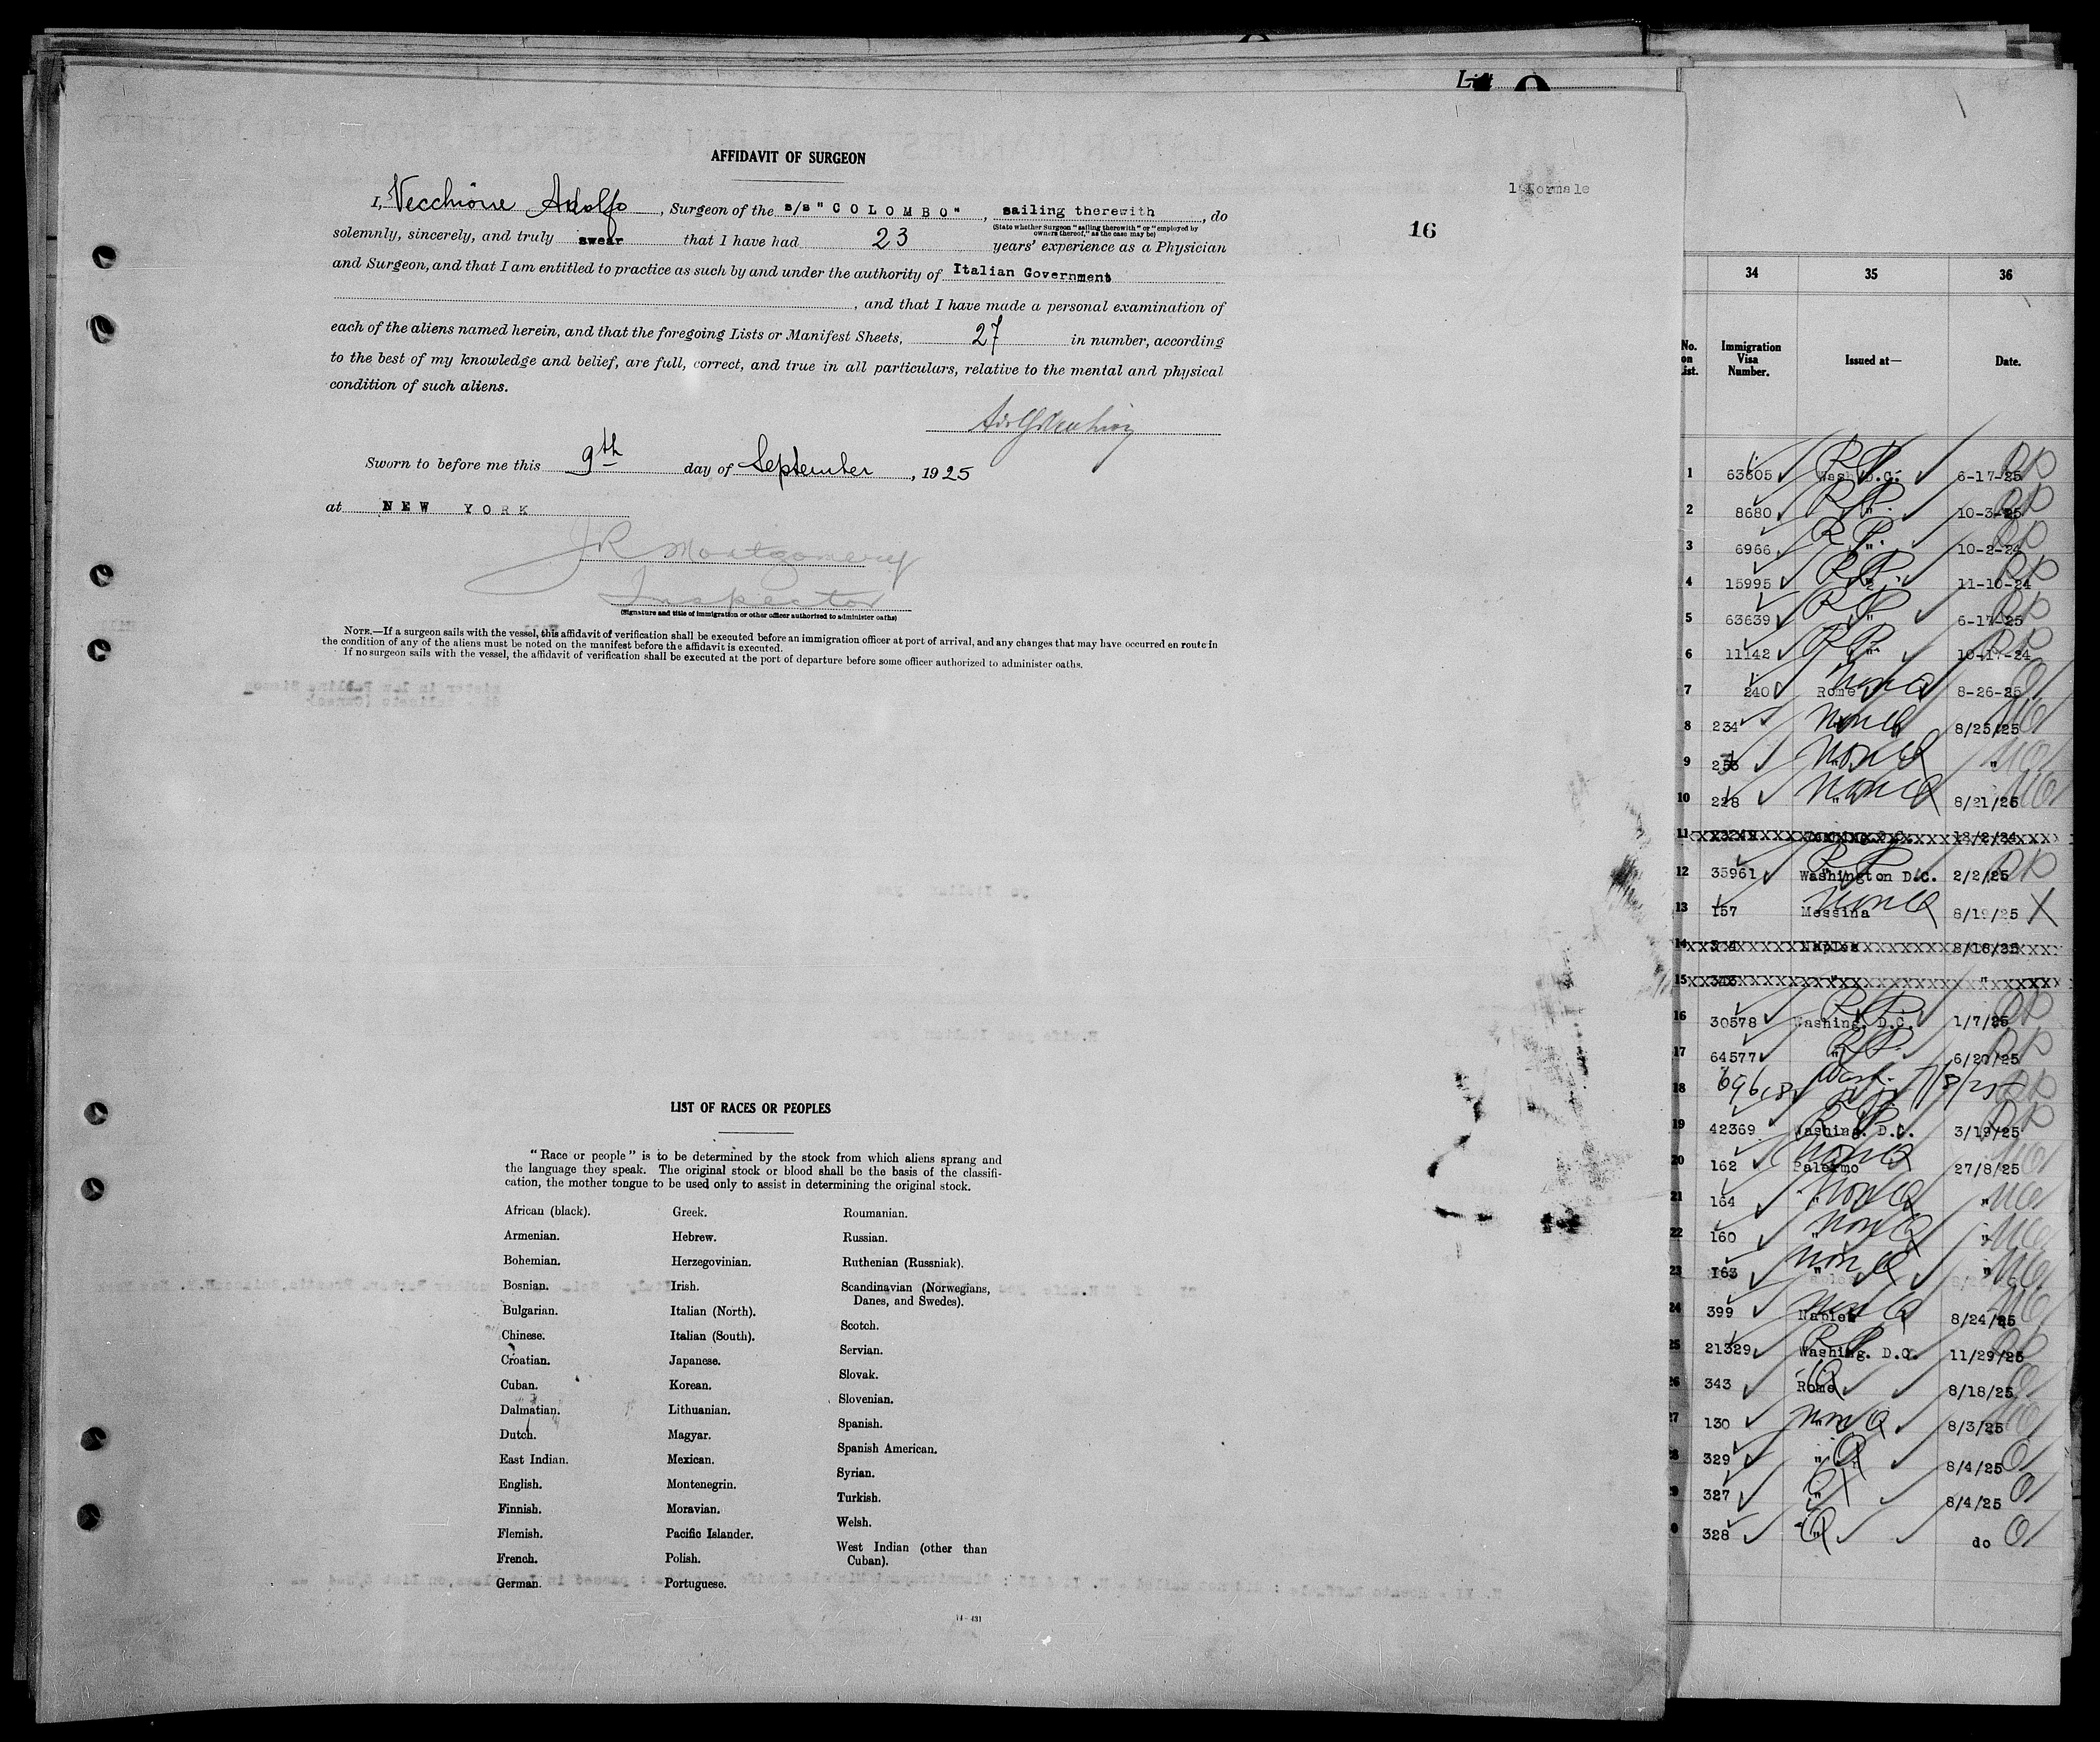 List
AFFIDAVIT OF SURGEON
16
I, Vecchione Adolfo, Surgeon of the s/s "COLOMBO", sailing therewith, do
(State whether Surgeon "sailing therewith" or "employed by
owners thereof," as the case may be)
solemnly, sincerely, and truly swear that I have had 23 years' experience as a Physician
and Surgeon, and that I am entitled to practice as such by and under the authority of Italian Government
, and that I have made a personal examination of
each of the aliens named herein, and that the foregoing Lists or Manifest Sheets, 27 in number, according
to the best of my knowledge and belief, are full, correct, and true in all particulars, relative to the mental and physical
condition of such aliens.
Sworn to before me this 9th day of September, 1925
at NEW YORK
JR Montgomery
Inspector
(Signature and title of immigration or other officer authorized to administer oaths)
NOTE.—If a surgeon sails with the vessel, this affidavit of verification shall be executed before an immigration officer at port of arrival, and any changes that may have occurred en route in
the condition of any of the aliens must be noted on the manifest before the affidavit is executed.
If no surgeon sails with the vessel, the affidavit of verification shall be executed at the port of departure before some officer authorized to administer oaths.
LIST OF RACES OR PEOPLES
"Race or people" is to be determined by the stock from which aliens sprang and
the language they speak. The original stock or blood shall be the basis of the classifi-
cation, the mother tongue to be used only to assist in determining the original stock.
African (black).
Armenian.
Bohemian.
Bosnian.
Bulgarian.
Chinese.
Croatian.
Cuban.
Dalmatian.
Dutch.
East Indian.
English.
Finnish.
Flemish.
French.
German.
Greek.
Hebrew.
Herzegovinian.
Irish.
Italian (North).
Italian (South).
Japanese.
Korean.
Lithuanian.
Magyar.
Mexican.
Montenegrin.
Moravian.
Pacific Islander.
Polish.
Portuguese.
Roumanian.
Russian.
Ruthenian (Russniak).
Scandinavian (Norwegians,
Danes, and Swedes).
Scotch.
Servian.
Slovak.
Slovenian.
Spanish.
Spanish American.
Syrian.
Turkish.
Welsh.
West Indian (other than
Cuban).
14-431
34 35 36
No. on List. Immigration Visa Number. Issued at— Date.
1 63605 Wash D.C. RP 6-17-25
2 8680 " RP 10-3-25
3 6966 " RP 10-2-24
4 15995 " RP 11-10-24
5 63639 " RP 6-17-25
6 11142 " RP 10-17-24
7 240 Rome 8-26-25
8 234 " 8/25/25
9 "
10 228 " 8/21/25
11 12/2/24
12 35961 Washington D.C. RP 2/2/25
13 157 Messina Non Q 8/19/25 X
14 Naples 8/18/25
15 343 " "
16 30578 Washing. D.C. RP 1/7/25
17 64577 " RP 6/20/25
18 Wash.
19 42369 Washing. D.C. RP 3/19/25
20 162 Palermo Non Q 27/8/25
21 164 " Non Q "
22 160 " Non Q "
23 163 " Non Q "
24 399 Naples Non Q 8/24/25
25 21329 Washing. D.C. RP 11/29/25
26 343 Rome Q 8/18/25
27 130 " Non Q 8/3/25
28 329 " Q 8/4/25
29 327 " Q 8/4/25
30 328 " Q do